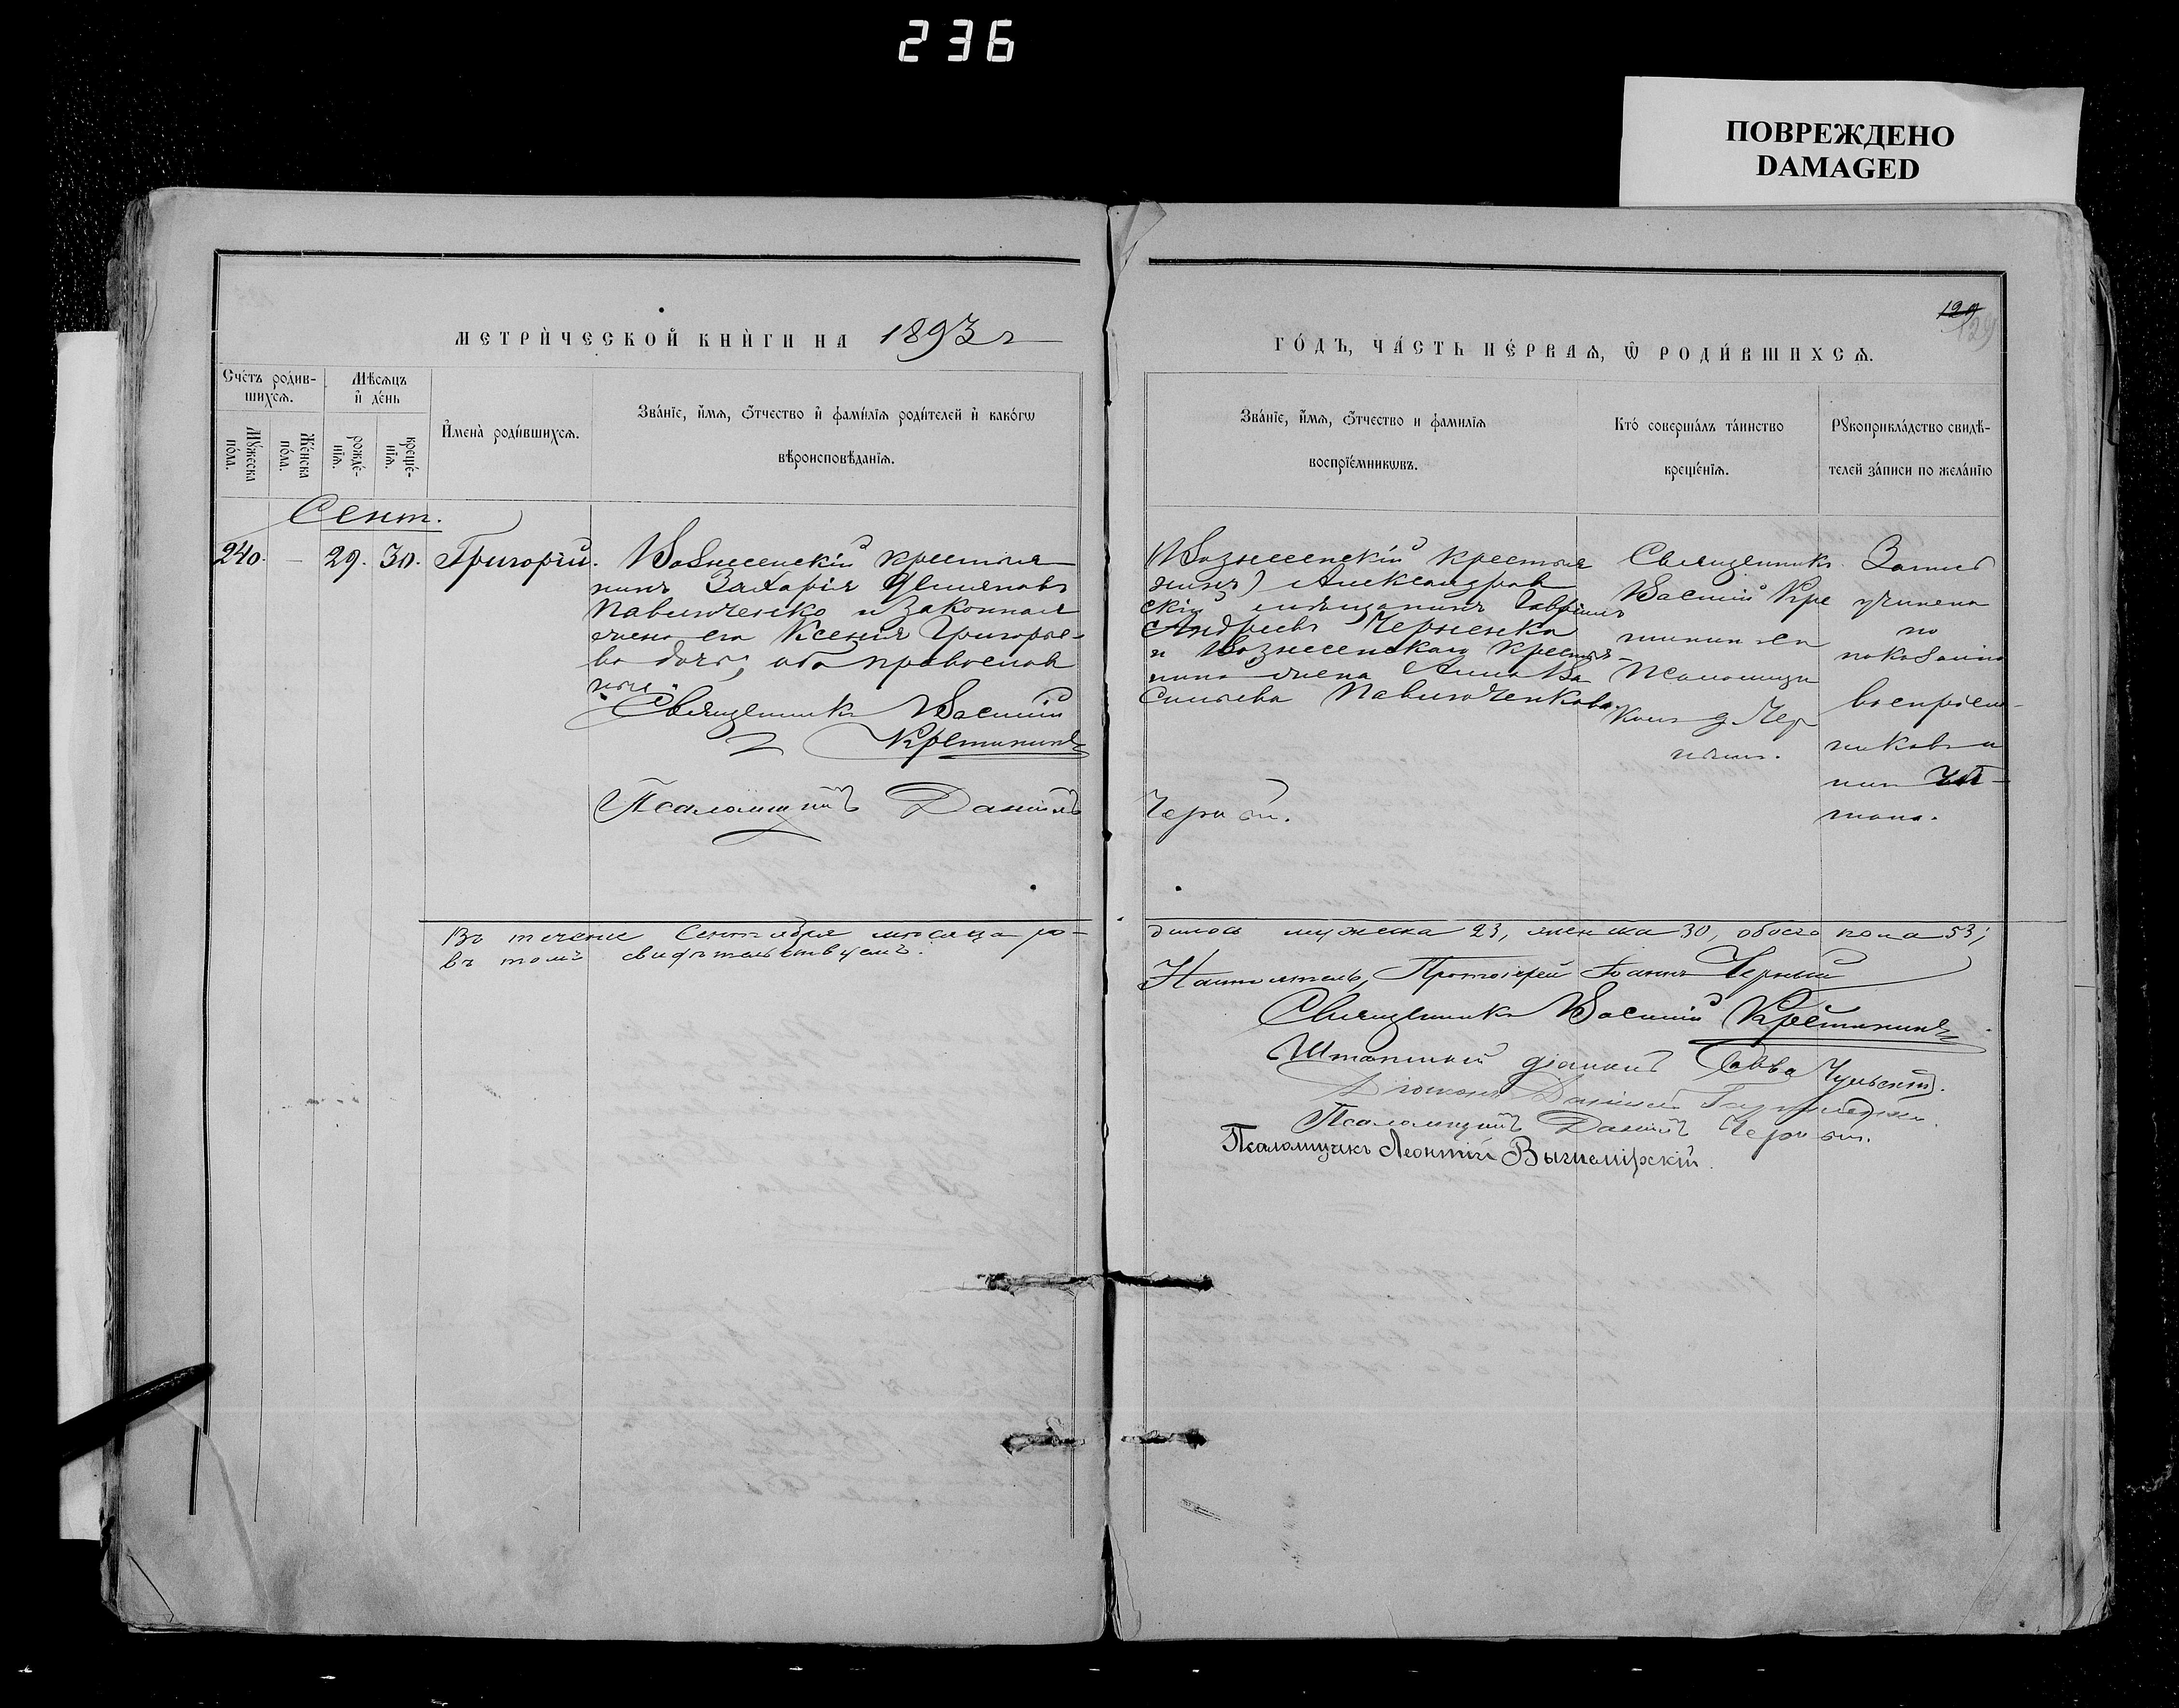 236
ПОВРЕЖДЕНО
DAMAGED
129
129
МЕТРИ́ЧЕСКОЙ КНИ́ГИ НА 1893 г
ГО́ДЪ, ЧА́СТЬ ПЕ́РВАѦ, Ѿ РОДИ́ВШИХСѦ.
Сче́тъ роди́в-
шихсѧ.
Мѣ́сѧцъ
и҆ де́нь
Мꙋ́жеска
по́ла.
Же́нска
по́ла.
рожде́-
нїѧ.
креще́-
нїѧ.
И҆мена̀ роди́вшихсѧ.
Зва́нїе, и҆́мѧ, ѻ҆́тчество и҆ фами́лїѧ роди́телей и҆ како́гѡ
вѣроисповѣ́данїѧ.
Зва́нїе, и҆́мѧ, ѻ҆́тчество и фами́лїѧ
воспрїе́мникѡвъ.
Кто́ соверша́лъ та́инство
креще́нїѧ.
Рꙋкоприкла́дство свидѣ́-
телей за́писи по жела́нїю
Сент.
240. — 29. 30. Григорій.
Вознесенскій крестья
нинъ Захарія Демьяновъ
Павлюченко и законная
жена его Ксенія Григорье-
ва дочь, оба православ
ные.
Священникъ Василій
Крестининъ
Псаломщикъ Даніилъ
Вознесенскій крестья
нинъ) Александров
скій мѣщанинъ Гавріилъ
Андреевъ Черненко
и Вознесенскаго крестья-
нина жена Анна Ва
сильева Павлюченкова.
Черный.
Священникъ
Василій Кре
стининъ съ
псаломщи
комъ Д. Чер
нымъ.
Запись
учинена
по
показанію
воспріем-
никовъ и
тона.
Въ теченіе Сентября мѣсяца ро-
дилось мужска 23, женска 30, обоего пола 53;
въ томъ свидѣтельствуемъ.
Настоятель, Протоіерей Іоаннъ Черный
Священникъ Василій Крестининъ
Штатный діаконъ Савва
Діаконъ Даніилъ
Псаломщикъ Даніилъ Черный.
Псаломщикъ Леонтій Выгнемірскій.